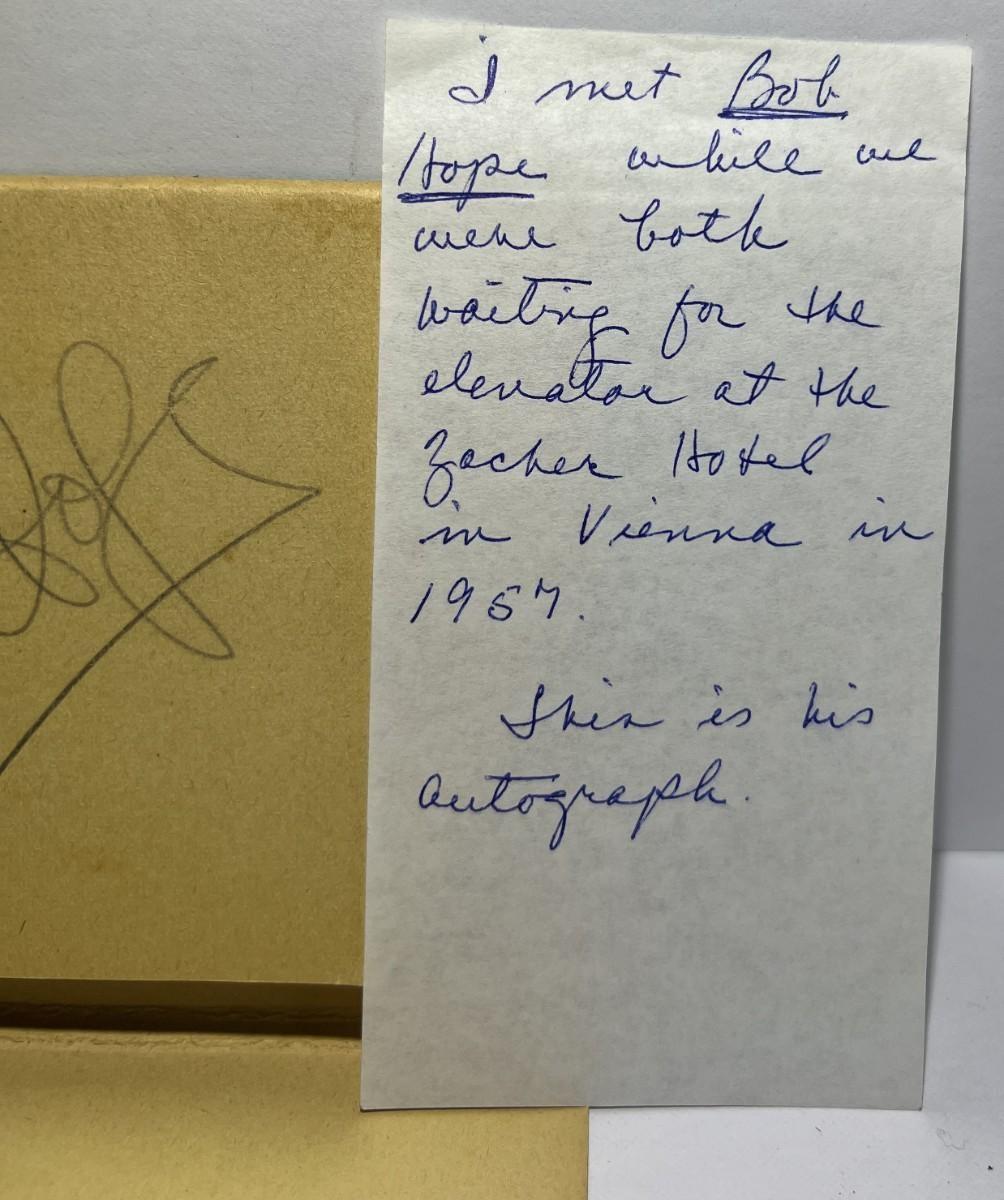 I met Bob
Hope while we
were both
waiting for the
elevator at the
Zacher Hotel
in Vienna in
1957.
This is his
autograph.